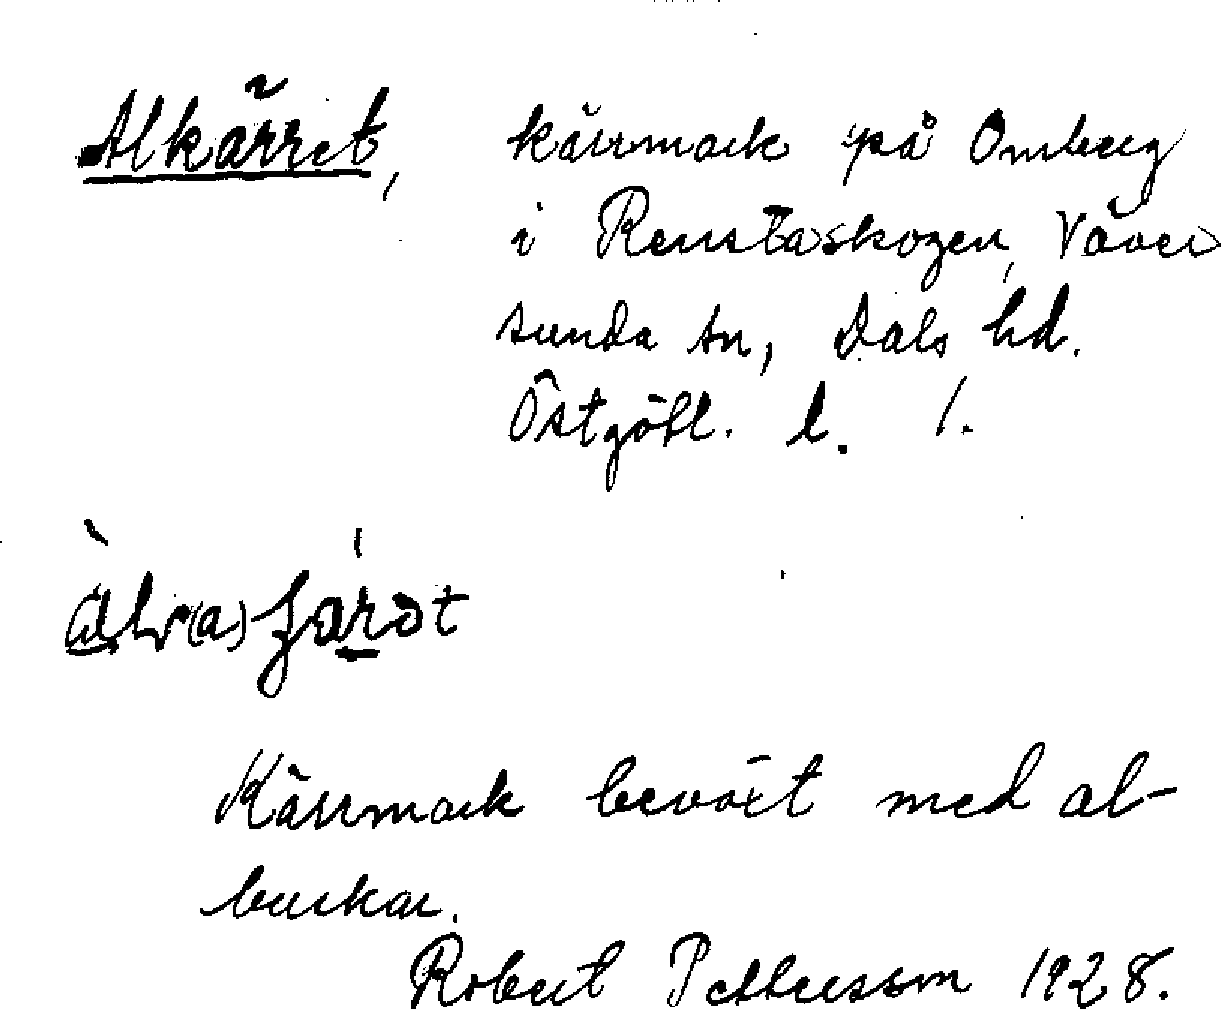 Alkärret, kärrmark på Omberg
i Renstaskogen, Väver
sunda sn, Dals hd.
Östgötl. l. 1.
Kärrmark beväxt med al-
buskar.
Robert Pettersson 1928.